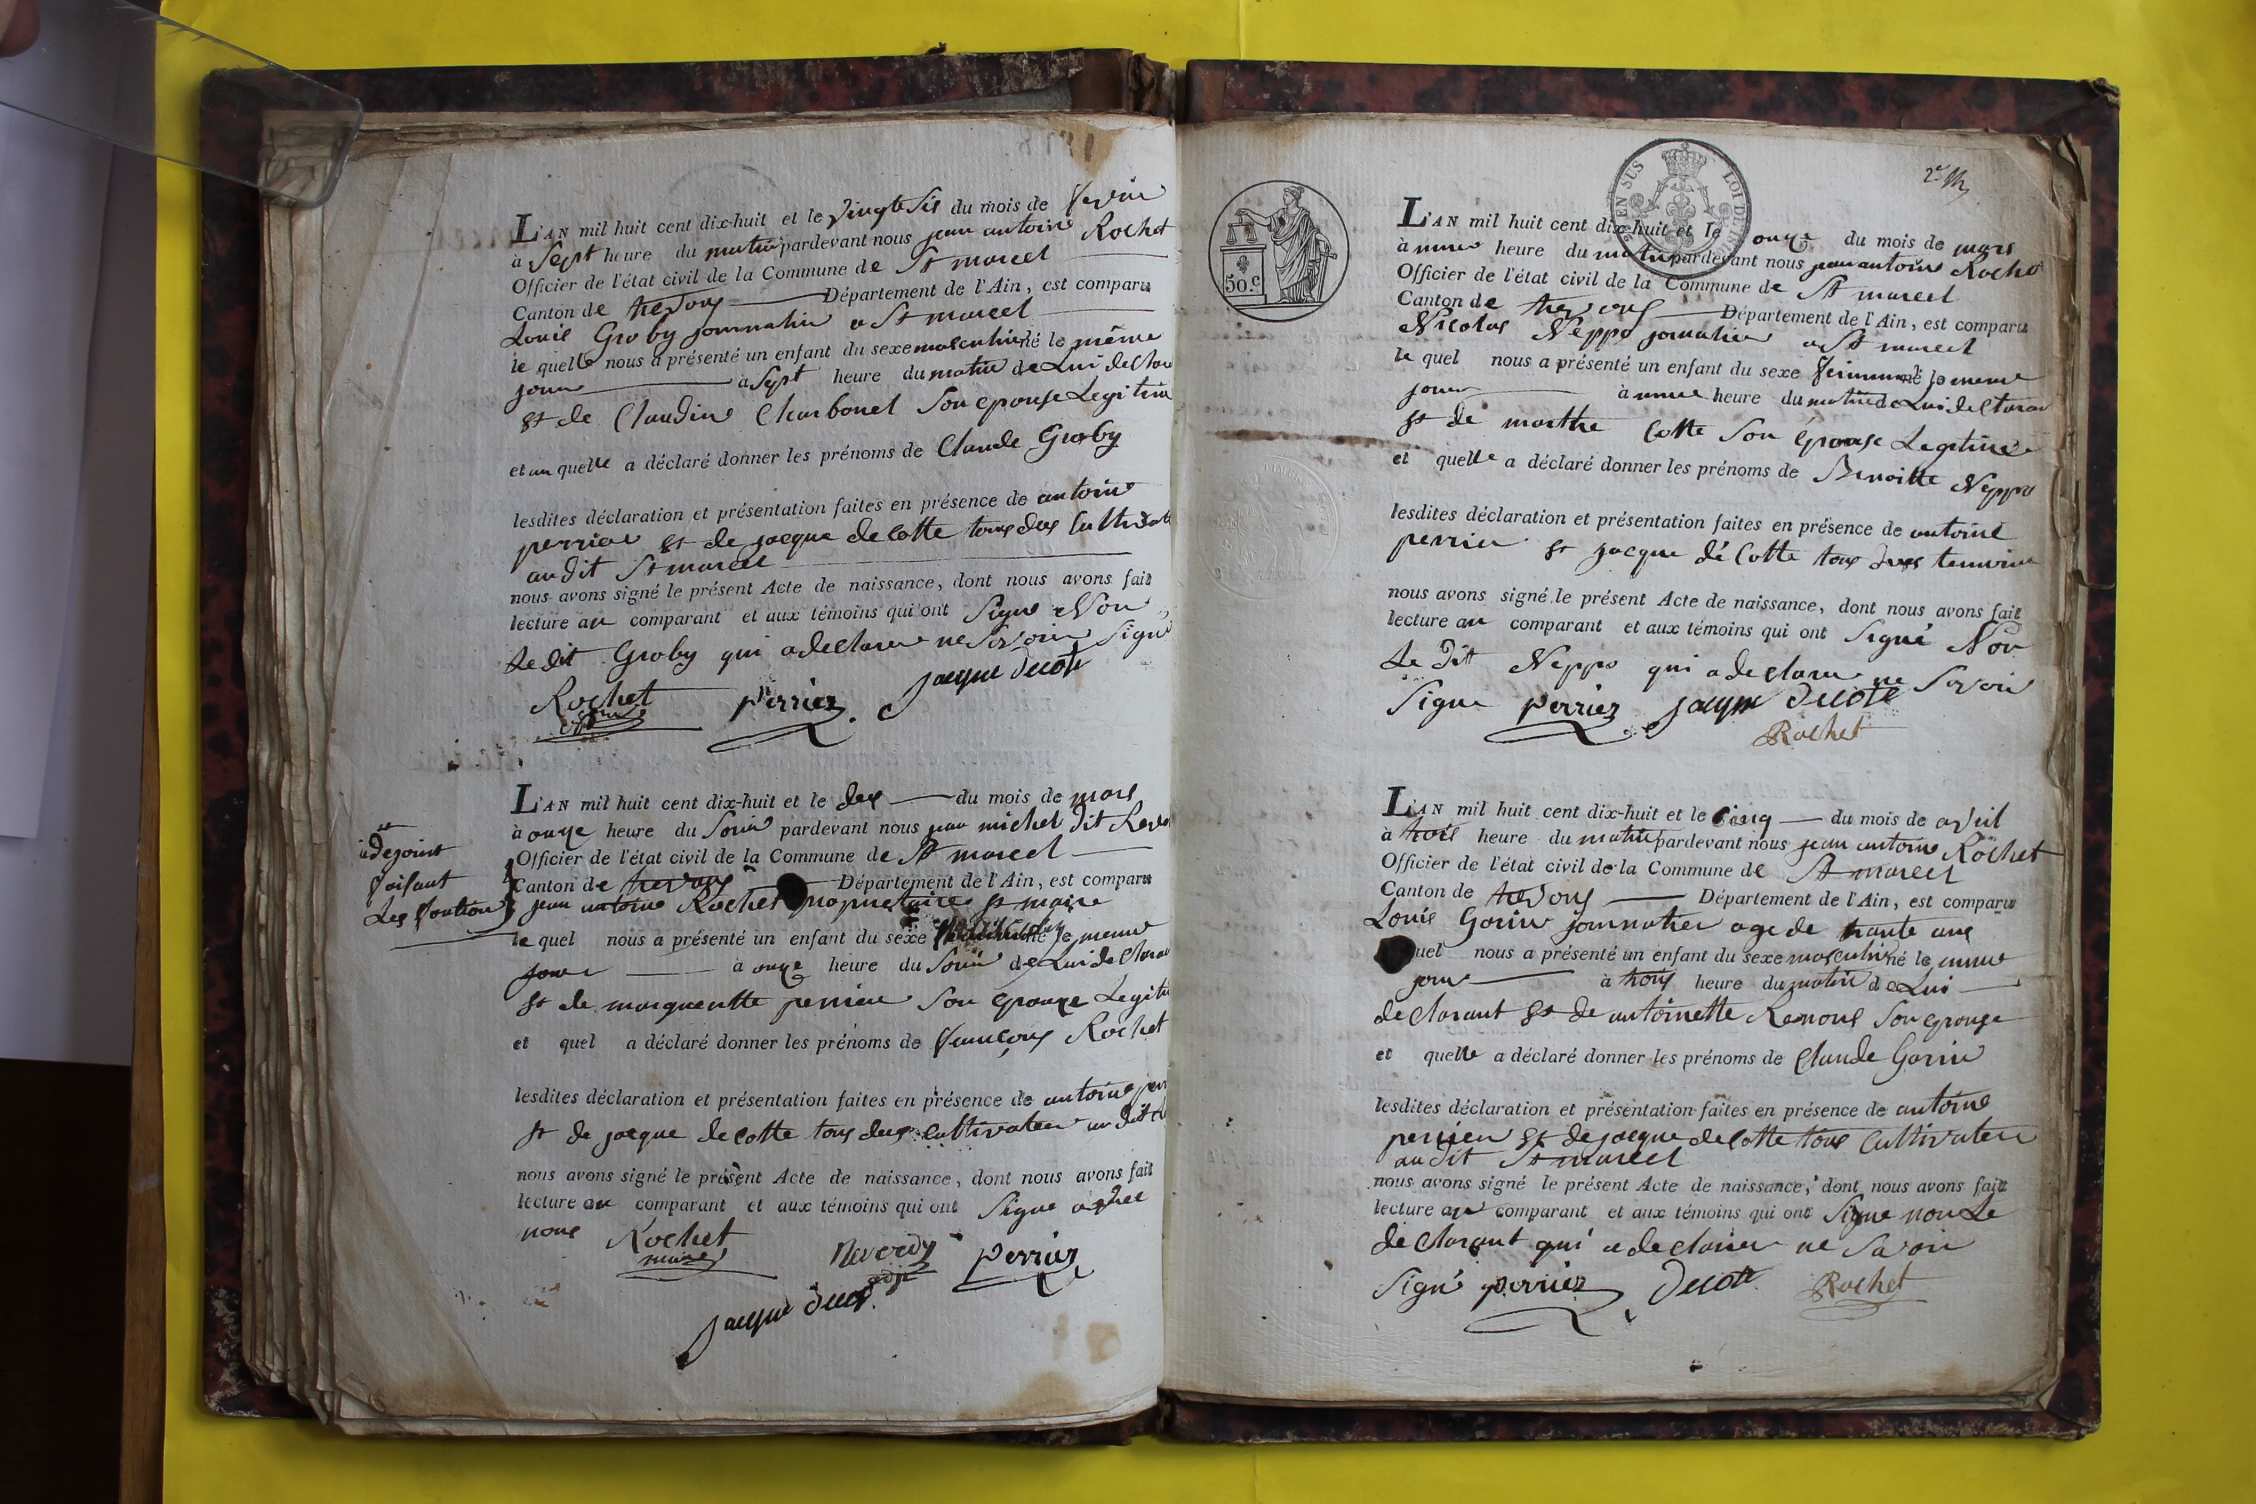 L'AN mil huit cent dix-huit et le vingt Sis du mois de
à Sept heure du matin pardevant nous jean antoine Rochet
Officier de l'état civil de la Commune de St marcel
Canton de trevoux Département de l'Ain, est comparu
Louis Groby journalier a St marcel
le quelle nous a présenté un enfant du sexe masculin né le même
jour à Sept heure du matin de Lui declara
et de Claudine Charbonet Son epouse Legitime
et au quelle a déclaré donner les prénoms de Claude Groby
lesdites déclaration et présentation faites en présence de antoine
perrier et de jacque de Cotte tous deux Cultivate
au dit St marcel
nous avons signé le présent Acte de naissance, dont nous avons fait
lecture au comparant et aux témoins qui ont Signe Non
Le dit Groby qui a declare ne Savoir Signé
Rochet perrier jacque decote
L'AN mil huit cent dix-huit et le deux du mois de mars
à onze heure du Soir pardevant nous jean michel dit
adejoint
faisant
Les fontion
Officier de l'état civil de la Commune de St marcel
Canton de trevoux Département de l'Ain, est comparu
jean antoine Rochet propriétaire et maire
le quel nous a présenté un enfant du sexe né le meme
jour à onze heure du Soir de Lui declara
et de marguerite perrier Son epouze Legiti
et quel a déclaré donner les prénoms de françois Rochet
lesdites déclaration et présentation faites en présence de antoine perr
et de jacque de cotte tous deux cultivateur au dit
nous avons signé le présent Acte de naissance, dont nous avons fait
lecture au comparant et aux témoins qui ont Signe avec
nous Rochet
maire
perrier
jacque decot
2e
BIENS SUS LOI DU
50.c
L'AN mil huit cent dix-huit et le onze du mois de mars
à heure du matin pardevant nous jean antoine Roche
Officier de l'état civil de la Commune de St marcel
Canton de trevoux Département de l'Ain, est comparu
Nicolas Neppo journalier a St marcel
le quel nous a présenté un enfant du sexe feminin né le meme
jour à heure du matin de Lui declara
et de marthe Cotte Son épouse Legitime
et quelle a déclaré donner les prénoms de Benoitte Neppo
lesdites déclaration et présentation faites en présence de antoine
perrier et jacque dé Cotte tous deux
nous avons signé le présent Acte de naissance, dont nous avons fait
lecture au comparant et aux témoins qui ont Signé Non
Le Dit Neppo qui a declare ne Savoir
Signe perrier jacque decote
Rochet
L'AN mil huit cent dix-huit et le Cinq du mois de avril
à trois heure du matin pardevant nous jean antoine Rochet
Officier de l'état civil de la Commune de St marcel
Canton de trevoux Département de l'Ain, est comparu
Louis Gorin journalier age de trante ans
quel nous a présenté un enfant du sexe masculin né le meme
jour à trois heure du matin de Lui
declarant et de antoinette Son epouse
et quelle a déclaré donner les prénoms de Claude Gorin
lesdites déclaration et présentation faites en présence de antoine
perrier et de jacque de Cotte tous Cultivateur
au dit St marcel
nous avons signé le présent Acte de naissance, dont nous avons fait
lecture au comparant et aux témoins qui ont Signe non Le
declarant qui a declarer ne Savoir
Signé perrier Decote Rochet